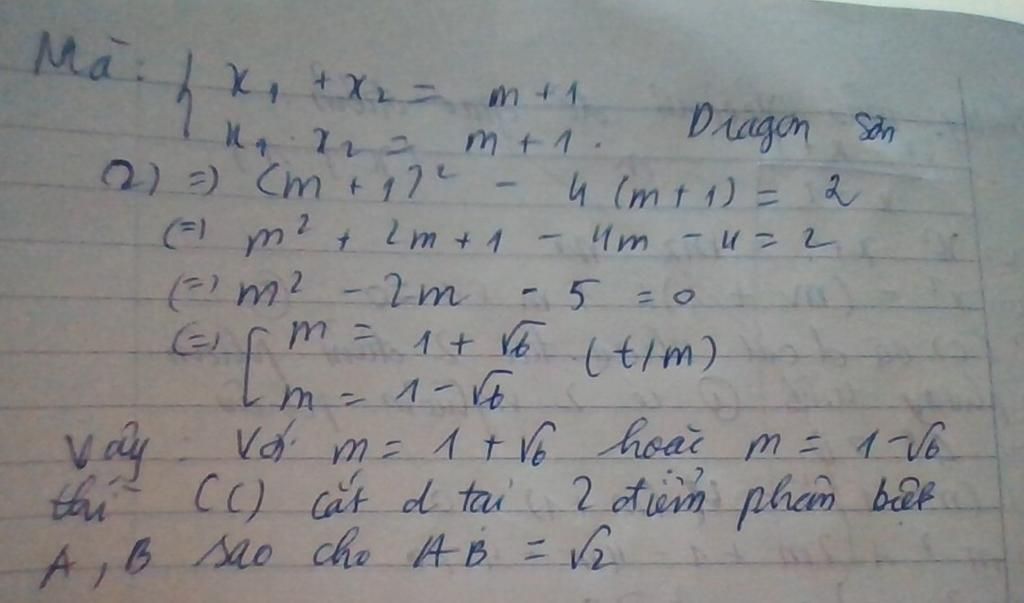 Mà: { x₁ + x₂ = m + 1
x₁ . x₂ = m + 1. Dragon sơn
(2) => (m + 1)² - 4 (m + 1) = 2
(=) m² + 2m + 1 - 4m - 4 = 2
(=) m² - 2m - 5 = 0
(=) [ m = 1 + √6 (t/m)
m = 1 - √6
Vậy : Với m = 1 + √6 hoặc m = 1 - √6
thì (C) cắt d tại 2 điểm phân biệt
A, B sao cho AB = √2